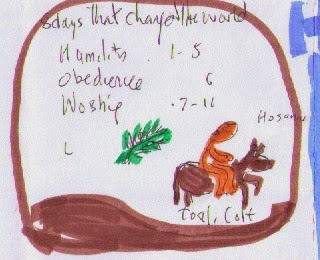 8days that changed the world
Humility 1-5
Obedience 6
Worship 7-11
Hosanna
L
Foal, Colt